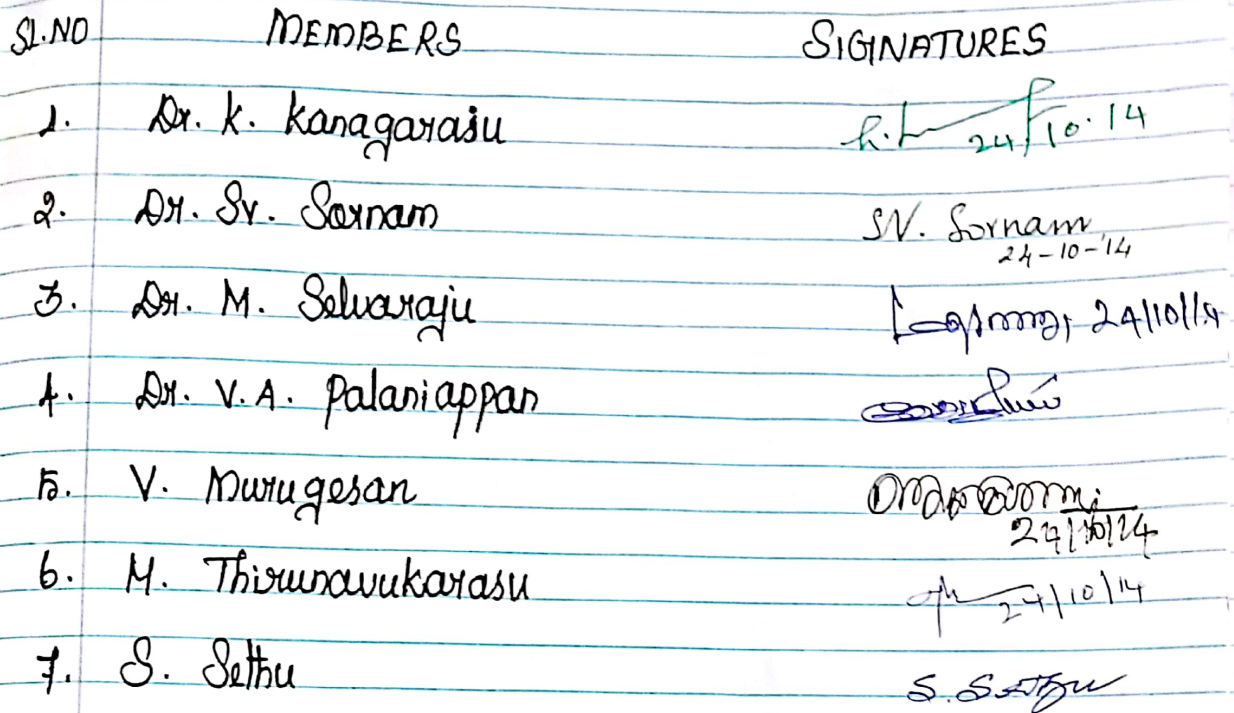 SL.NO MEMBERS SIGINATURES
1. Dr. K. Kanagaraju 24/10.14
2. Dr. Sv. Sornam SV. Sornam
24-10-14
3. Dr. M. Selvaraju 24/10/14
4. Dr. V.A. Palaniappan
5. V. Murugesan
24/10/14
6. M. Thirunavukarasu 24/10/14
7. S. Sethu